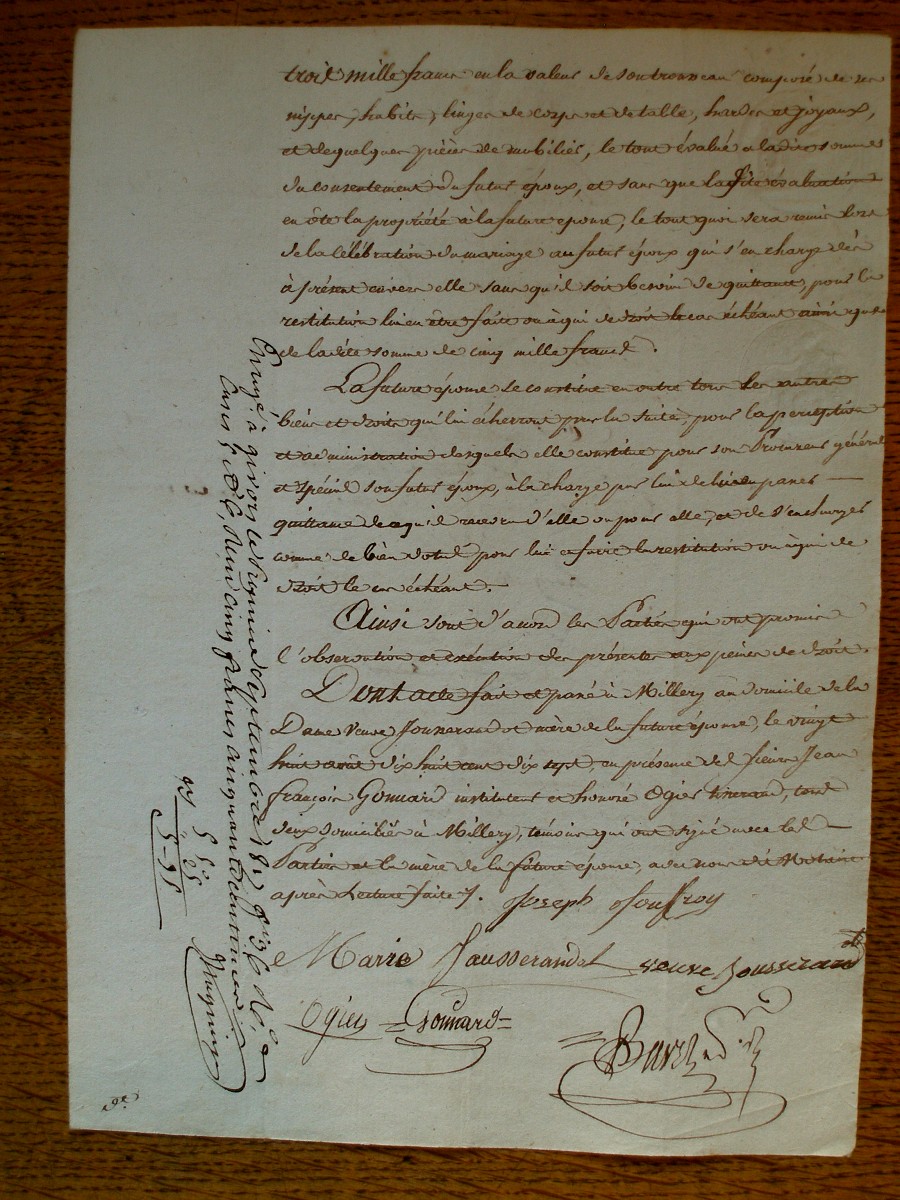 trois mille francs en la valeur de son trousseau composé de ses
nippes, habits, linges de corps et de table, hardes et joyaux,
et de quelques pièces de mobilier, le tout évalué à la dite somme
du consentement du futur époux, et sans que la dite évaluation
en ôte la propriété à la future épouse, le tout quoi sera remis lors
de la célébration du mariage au futur époux qui s'en charge dès
à présent envers elle sans qu'il soit besoin de quittance, pour la
restitution lui en être faite ou à qui de droit le cas échéant ainsi que
de la dite somme de cinq mille francs.
La future épouse se constitue en outre tous les autres
biens et droits qui lui écherront par la suite, pour la perception
et administration desquels elle constitue pour son Procureur général
et spécial son futur époux, à la charge par lui de lui en passer
quittance de ce qu'il recevra d'elle ou pour elle, et de s'en charger
comme de bien dotal pour lui en faire la restitution ou à qui de
droit le cas échéant.
Ainsi sont d'accord les Parties qui ont promis
l'observation et exécution des présentes aux peines de droit.
Dont acte fait et passé à Millery au domicile de la
Dame Veuve Jousserandot mère de la future épouse, le vingt
huit août dix huit cent dix sept en présence des sieurs Jean
françois Gonnard instituteur et honoré Ogier tisserand, tous
deux domiciliés à Millery, témoins qui ont signé avec les
Parties et la mère de la future épouse, avec nous dit Notaire
après lecture faite.
Joseph Jouffroy
Marie Jausserandot veuve Jousserandot
Ogier Gonnard
Enregé à givors le premier septembre 1817
cases 5 et 6, reçu cinq francs cinquante centimes
5
55
5-55